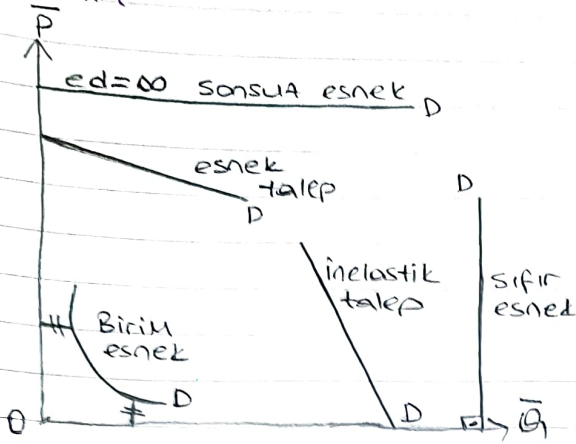 P
ed=∞ sonsuz esnek D
esnek
talep
D
D
inelastik
talep
sıfır
esnek
Birim
esnek
D
D
0
Q